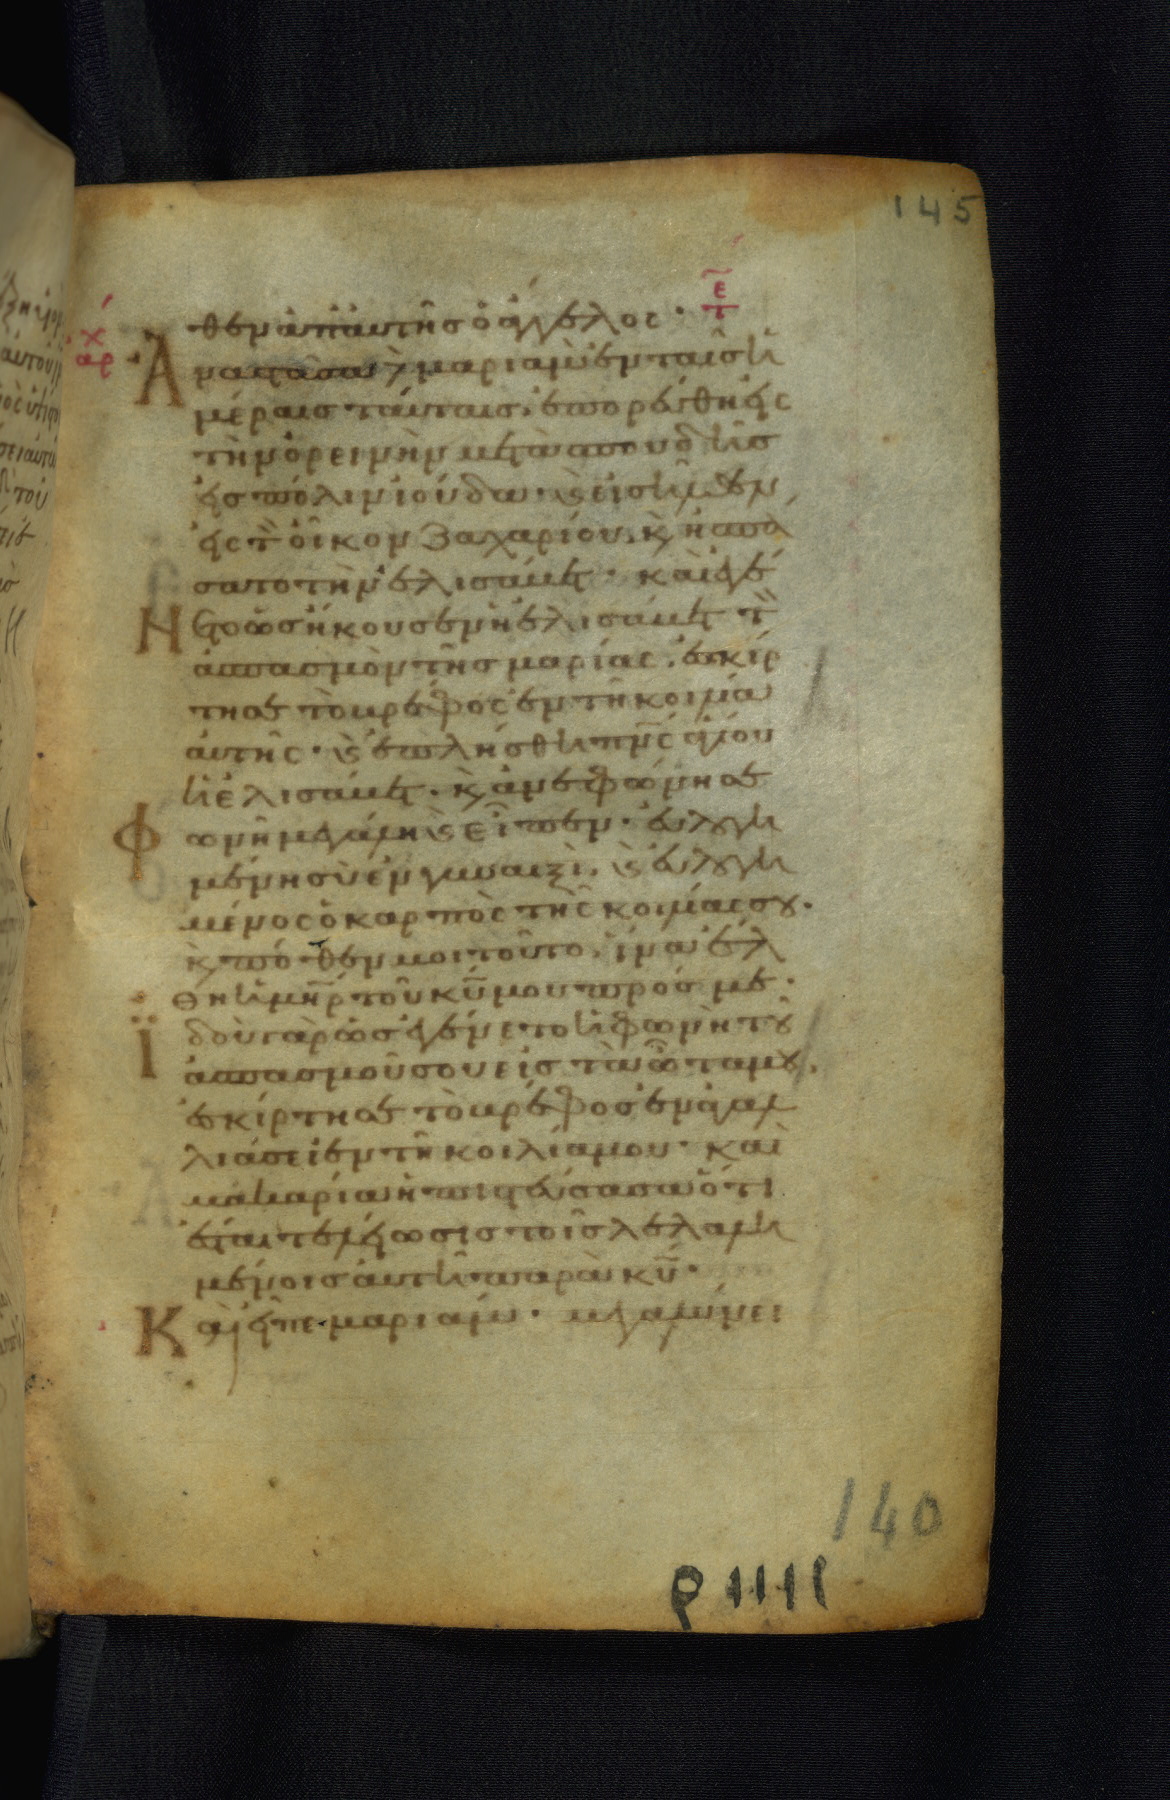 145
θεν ἀπ' αὐτῆς ὁ ἄγγελος· τε
χ
αρ
Ἀναστᾶσα δὲ μαριὰμ ἐν ταῖς ἡ
μέραις ταύταις, ἐπορεύθη εἰς
τὴν ὀρεινὴν μετὰ σπουδῆς
εἰς πόλιν ἰούδα· καὶ εἰσῆλθεν
εἰς τὸν οἶκον ζαχαρίου. κ ἠσπά
σατο τὴν ἐλισάβετ· καὶ ἐγέ
Νετο ὡς ἤκουσεν ἡ ἐλισάβετ τὸν
ἀσπασμὸν τῆς μαρίας. ἐσκίρ
τησε τὸ βρέφος ἐν τῇ κοιλία
αὐτῆς· καὶ ἐπλήσθη πνς ἁγίου
ἡ ἐλισάβετ. κ ἀνεφώνησε
Φωνῇ μεγάλη καὶ εἶπεν· εὐλογη
μένη σὺ ἐν γυναιξὶ. καὶ εὐλογη
μένος ὁ καρπὸς τῆς κοιλίας σου.
κ πόθεν μοι τοῦτο. ἵνα ἔλ
θη ἡ μηρ τοῦ κυ μου πρός με·
Ϊδοὺ γὰρ ὡς ἐγένετο ἡ φωνὴ τοῦ
ἀσπασμοῦ σου εἰς τὰ ὦτα μου.
ἐσκίρτησε τὸ βρέφος ἐν ἀγαλ
λιάσει ἐν τῇ κοιλία μου· καὶ
μακαρία ἡ πιστεύσασα ὅτι
ἔσται τελείωσις τοῖς λελαλη
μένοις αὐτῇ παρὰ κυ·
Καὶ εἶπε μαριάμ· μεγαλύνει
140